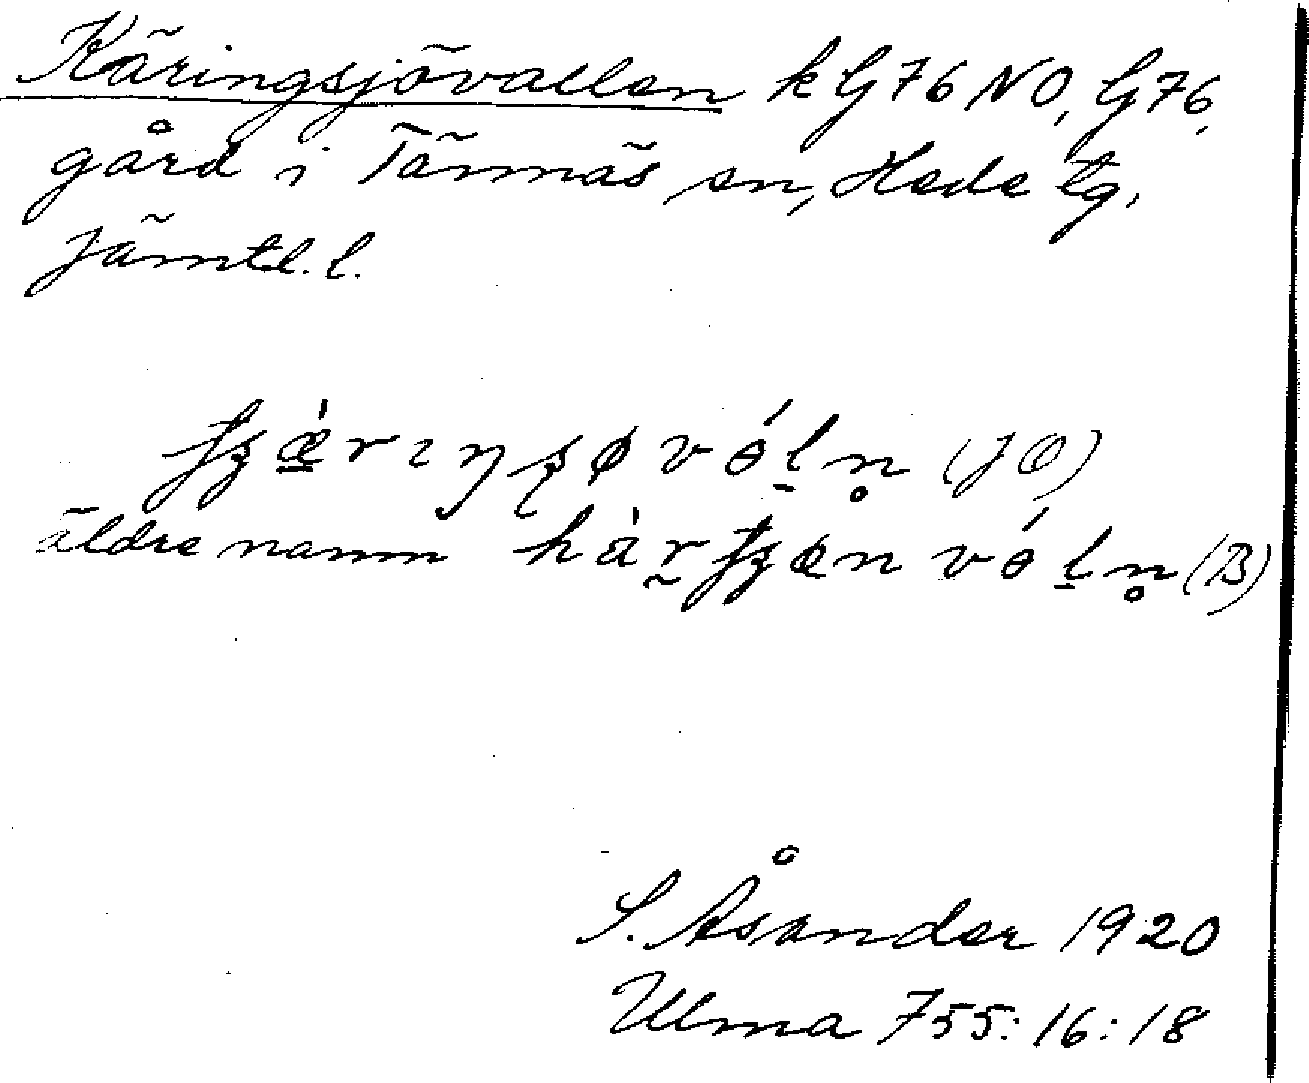 Käringsjövallen k G 76 NO, G 76,
gård i Tännäs sn, Hede tg,
Jämtl. l.
(JO)
äldre namn (B)
S. Åsander 1920
Ulma 755:16:18